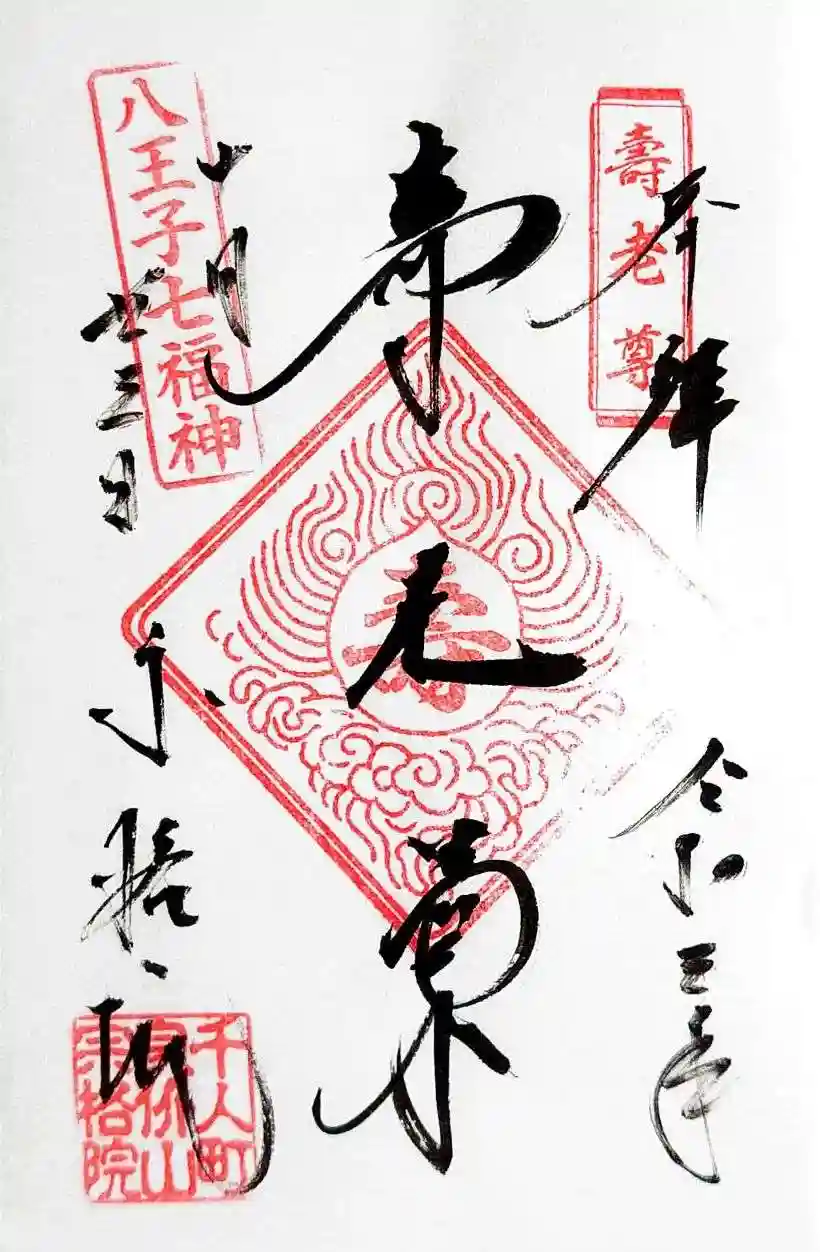 奉拝
壽老尊
令和三年
寿老尊
寿
十月
廿三日
八王子七福神
宗格院
千人町
宗格院